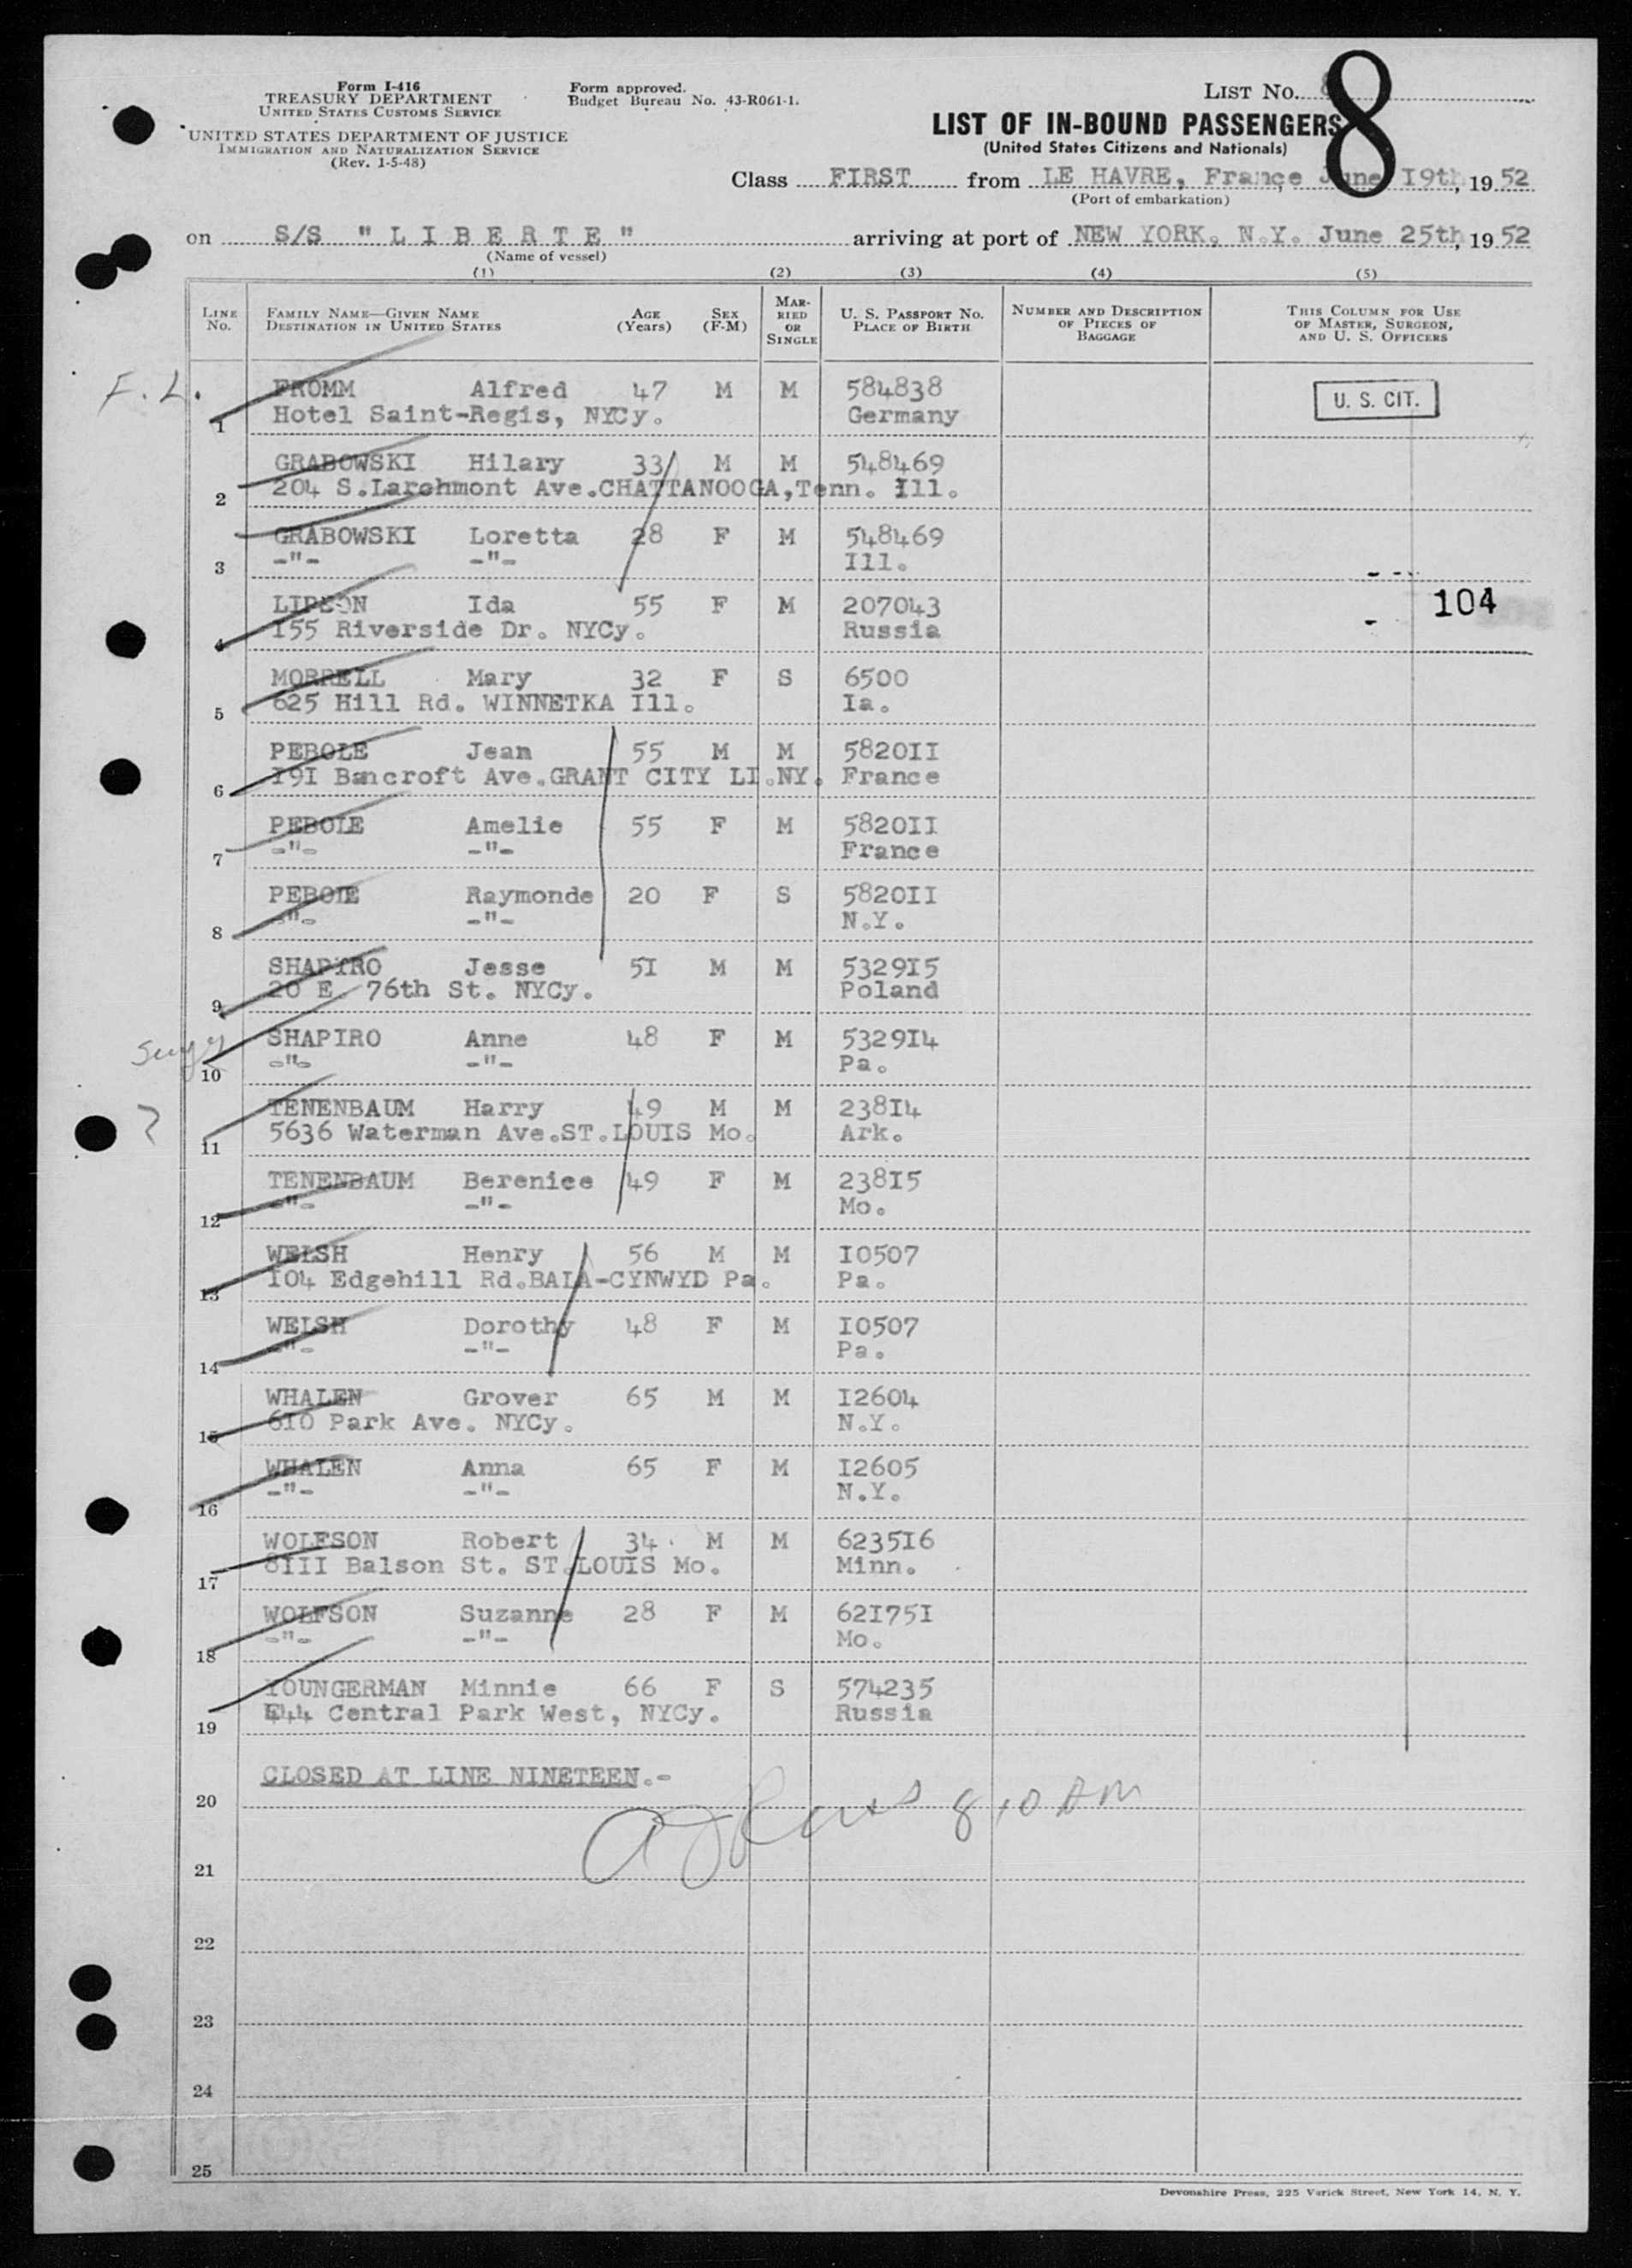 Form I-416
TREASURY DEPARTMENT
UNITED STATES CUSTOMS SERVICE
UNITED STATES DEPARTMENT OF JUSTICE
IMMIGRATION AND NATURALIZATION SERVICE
(Rev. 1-5-48)
Form approved.
Budget Bureau No. 43-R061-1.
LIST NO. 8
LIST OF IN-BOUND PASSENGERS
(United States Citizens and Nationals)
Class FIRST from LE HAVRE, France, June I9th, 19 52
(Port of embarkation)
on S/S " L I B E R T E " arriving at port of NEW YORK, N.Y. June 25th, 19 52
(Name of vessel)
(1) (2) (3) (4) (5)
LINE No.
FAMILY NAME—GIVEN NAME
DESTINATION IN UNITED STATES
AGE (Years)
SEX (F-M)
MARRIED OR SINGLE
U. S. PASSPORT NO.
PLACE OF BIRTH
NUMBER AND DESCRIPTION OF PIECES OF BAGGAGE
THIS COLUMN FOR USE OF MASTER, SURGEON, AND U. S. OFFICERS
F.L. FROMM Alfred 47 M M 584838 U. S. CIT.
1 Hotel Saint-Regis, NYCy. Germany
GRABOWSKI Hilary 33 M M 548469
2 204 S.Larchmont Ave.CHATTANOOGA,Tenn. Ill.
GRABOWSKI Loretta 28 F M 548469
3 -"- -"- Ill.
LIPSON Ida 55 F M 207043 104
4 I55 Riverside Dr. NYCy. Russia
MORRELL Mary 32 F S 6500
5 625 Hill Rd. WINNETKA Ill. Ia.
PEBOLE Jean 55 M M 582OII
6 I9I Bancroft Ave.GRANT CITY LI.NY. France
PEBOLE Amelie 55 F M 582OII
7 -"- -"- France
PEBOLE Raymonde 20 F S 582OII
8 -"- -"- N.Y.
SHAPIRO Jesse 5I M M 5329I5
9 20 E. 76th St. NYCy. Poland
SHAPIRO Anne 48 F M 5329I4
10 -"- -"- Pa.
TENENBAUM Harry 49 M M 238I4
11 5636 Waterman Ave.ST.LOUIS Mo. Ark.
TENENBAUM Berenice 49 F M 238I5
12 -"- -"- Mo.
WELSH Henry 56 M M I0507
13 I04 Edgehill Rd.BALA-CYNWYD Pa. Pa.
WELSH Dorothy 48 F M I0507
14 -"- -"- Pa.
WHALEN Grover 65 M M I2604
15 6I0 Park Ave. NYCy. N.Y.
WHALEN Anna 65 F M I2605
16 -"- -"- N.Y.
WOLFSON Robert 34 M M 6235I6
17 8III Balson St. ST.LOUIS Mo. Minn.
WOLFSON Suzanne 28 F M 62I75I
18 -"- -"- Mo.
YOUNGERMAN Minnie 66 F S 574235
19 Central Park West, NYCy. Russia
CLOSED AT LINE NINETEEN.-
20
21
22
23
24
25
Devonshire Press, 225 Varick Street, New York 14, N. Y.